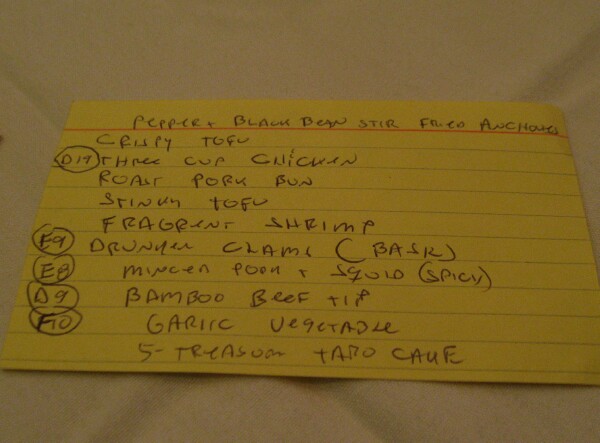 PEPPER + BLACK BEAN STIR FRIED ANCHOVIES
CRISPY TOFU
D17 THREE CUP CHICKEN
ROAST PORK BUN
STINKY TOFU
FRAGRENT SHRIMP
E9 DRUNKEN CLAMS (BASK)
E8 MINCED PORK + SQUID (SPICY)
D9 BAMBOO BEEF TIP
F10 GARLIC VEGETABLE
5-TREASURE TARO CAKE